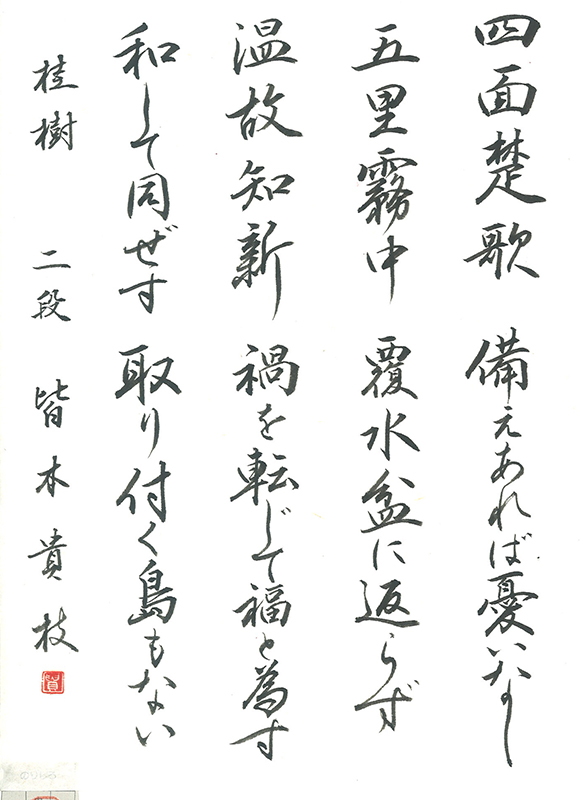 四面楚歌 備えあれば憂いなし
五里霧中 覆水盆に返らず
温故知新 禍を転じて福と為す
和して同ぜす 取り付く島もない
桂樹 二段 皆木貴枝
貴